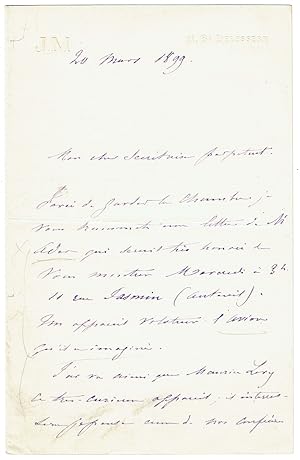 JM
20 Mars 1899.
Mon cher Secrétaire perpétuel.
Forcé de garder la chambre je
vous transmets une lettre de Mr
Ader qui serait très honoré de
vous montrer Mercredi à 3h.
11 rue Jasmin (Auteuil).
Son appareil volateur l'avion
qu'il a imaginé.
J'ai vu ainsi que Maurice Levy
ce très curieux appareil; il intéres-
sera je pense ceux de nos confrères